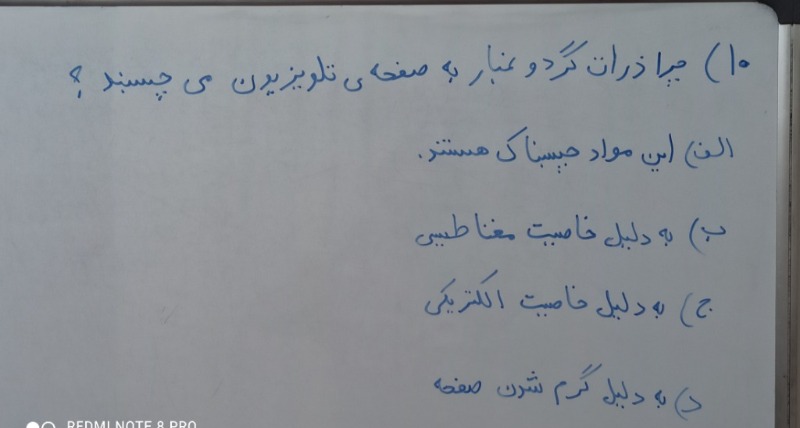 ۱۰) چرا ذرات گرد و غبار به صفحه ی تلویزیون می چسبند ؟
الف) این مواد چسبناک هستند.
ب) به دلیل خاصیت مغناطیسی
ج) به دلیل خاصیت الکتریکی
د) به دلیل گرم شدن صفحه
REDMI NOTE 8 PRO